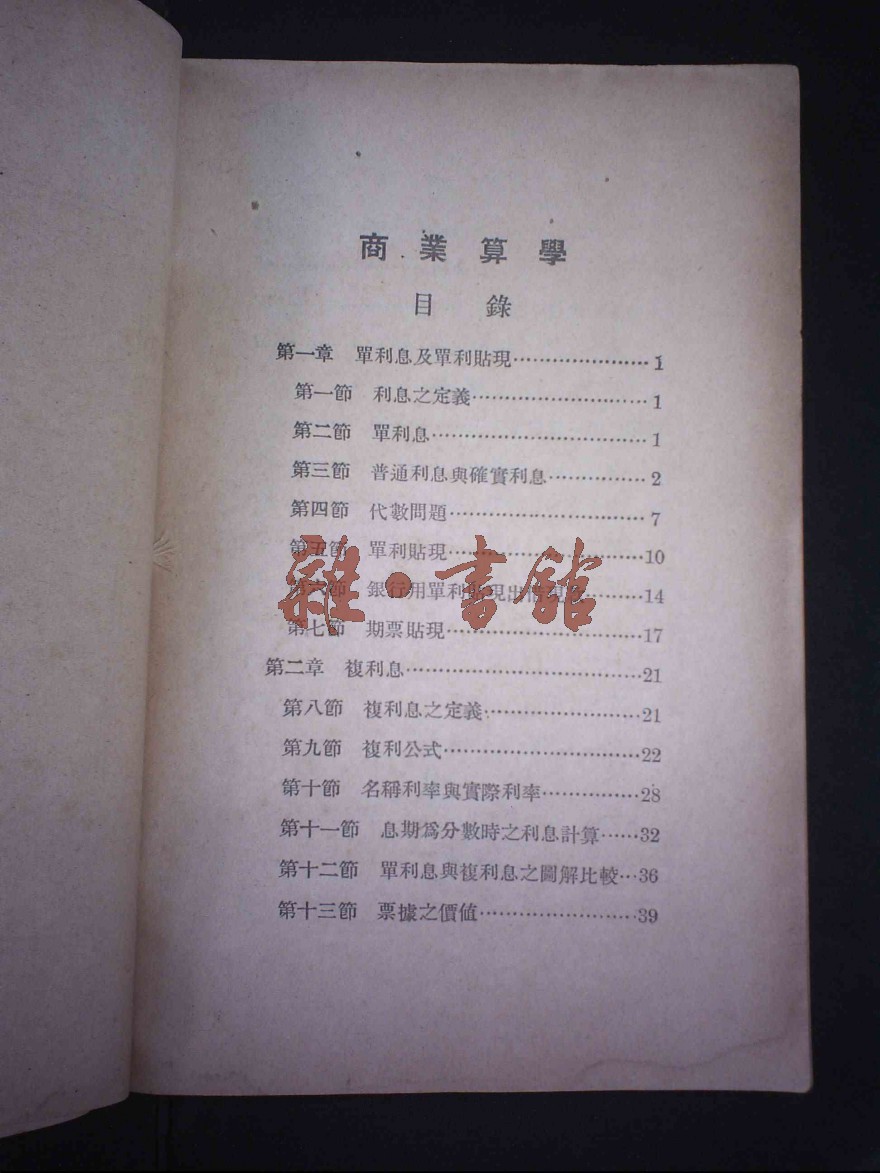 商業算學
目錄
第一章 單利息及單利貼現…………………1
第一節 利息之定義………………………1
第二節 單利息……………………………1
第三節 普通利息與確實利息……………2
第四節 代數問題…………………………7
第五節 單利貼現…………………………10
第六節 銀行用單利貼現出………14
第七節 期票貼現…………………………17
第二章 複利息………………………………21
第八節 複利息之定義……………………21
第九節 複利公式…………………………22
第十節 名稱利率與實際利率……………28
第十一節 息期為分數時之利息計算……32
第十二節 單利息與複利息之圖解比較…36
第十三節 票據之價值……………………39
雜·書館